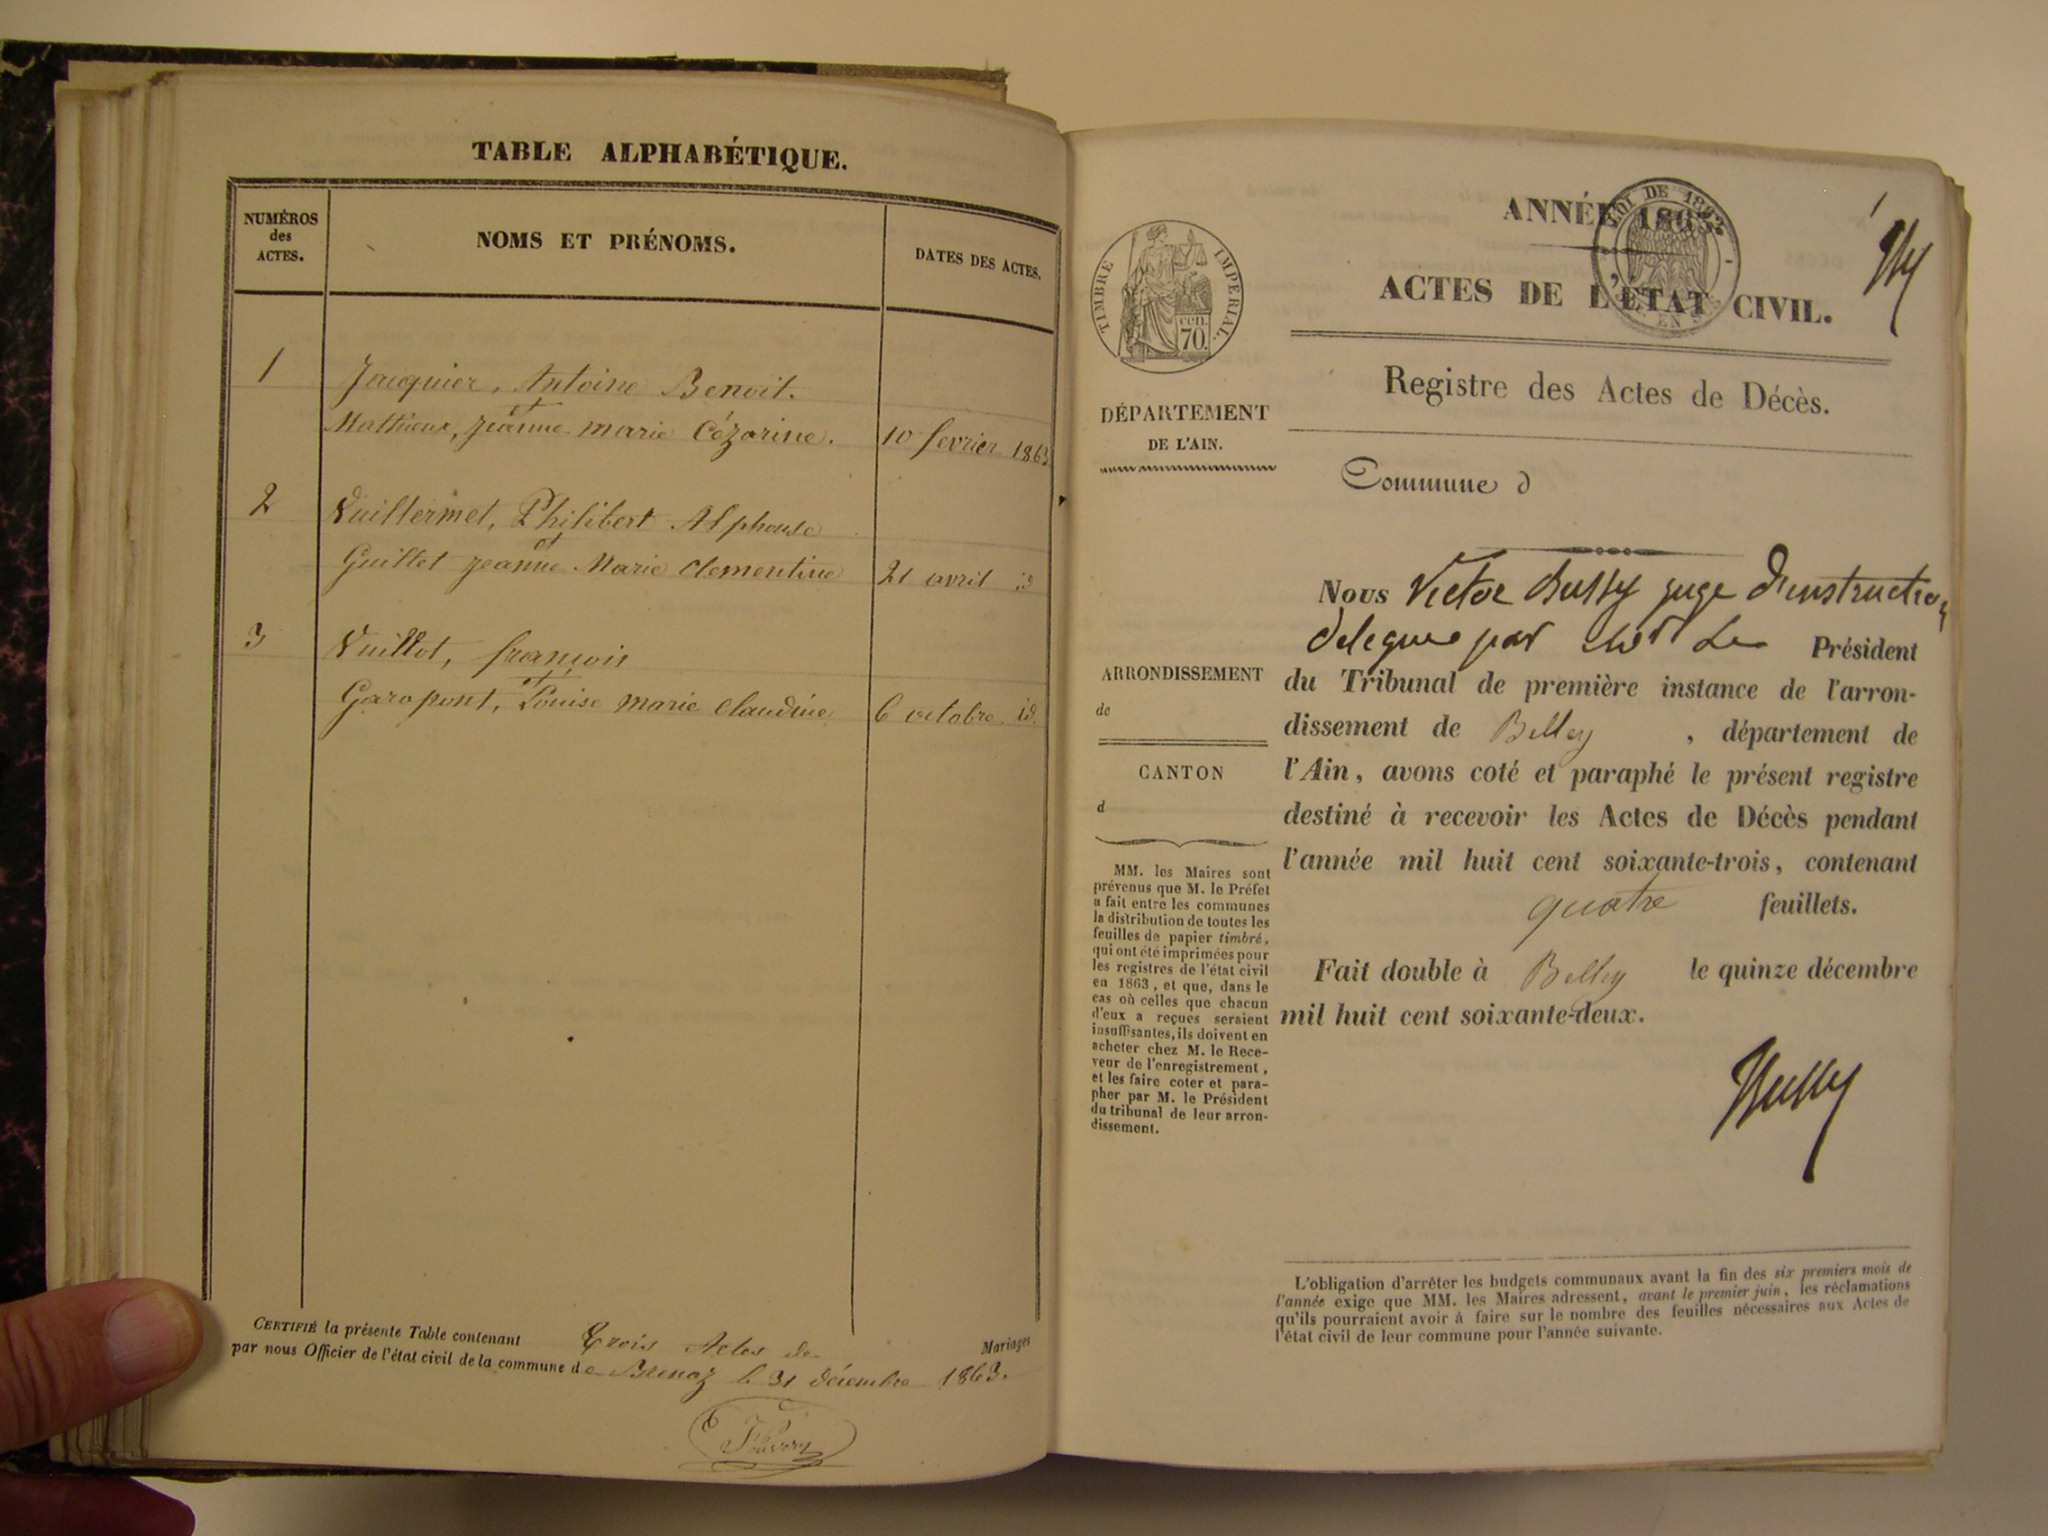 TABLE ALPHABÉTIQUE.
NUMÉROS
des
ACTES.
NOMS ET PRÉNOMS.
DATES DES ACTES.
1
Jacquier, Antoine Benoit.
et
Mathieux, jeanne marie Cézarine. 10 fevrier 1863
2
Vuillermet, Philibert Alphonse
et
Guillet jeanne Marie Clementine 21 avril id
3
Vuillot, françois
et
Garapont, Louise marie Claudine 6 octobre id.
CERTIFIÉ la présente Table contenant trois Actes de Mariages
par nous Officier de l'état civil de la commune de Brénaz le 31 décembre 1863.
ANNÉE 1863.
LOI DE 1862
EN SUS
ACTES DE L'ÉTAT CIVIL.
Registre des Actes de Décès.
TIMBRE IMPERIAL.
70 cen.
DÉPARTEMENT
DE L'AIN.
Commune d
ARRONDISSEMENT
de
CANTON
d
MM. les Maires sont
prévenus que M. le Préfet
a fait entre les communes
la distribution de toutes les
feuilles de papier timbré,
qui ont été imprimées pour
les registres de l'état civil
en 1863, et que, dans le
cas où celles que chacun
d'eux a reçues seraient
insuffisantes, ils doivent en
acheter chez M. le Rece-
veur de l'enregistrement,
et les faire coter et para-
pher par M. le Président
du tribunal de leur arron-
dissement.
Nous Victor Bussy juge d'instruction
delegue par Mr Le Président
du Tribunal de première instance de l'arron-
dissement de Belley, département de
l'Ain, avons coté et paraphé le présent registre
destiné à recevoir les Actes de Décès pendant
l'année mil huit cent soixante-trois, contenant
quatre feuillets.
Fait double à Belley le quinze décembre
mil huit cent soixante-deux.
Bussy
L'obligation d'arrêter les budgets communaux avant la fin des six premiers mois de
l'année exige que MM. les Maires adressent, avant le premier juin, les réclamations
qu'ils pourraient avoir à faire sur le nombre des feuilles nécessaires aux Actes de
l'état civil de leur commune pour l'année suivante.